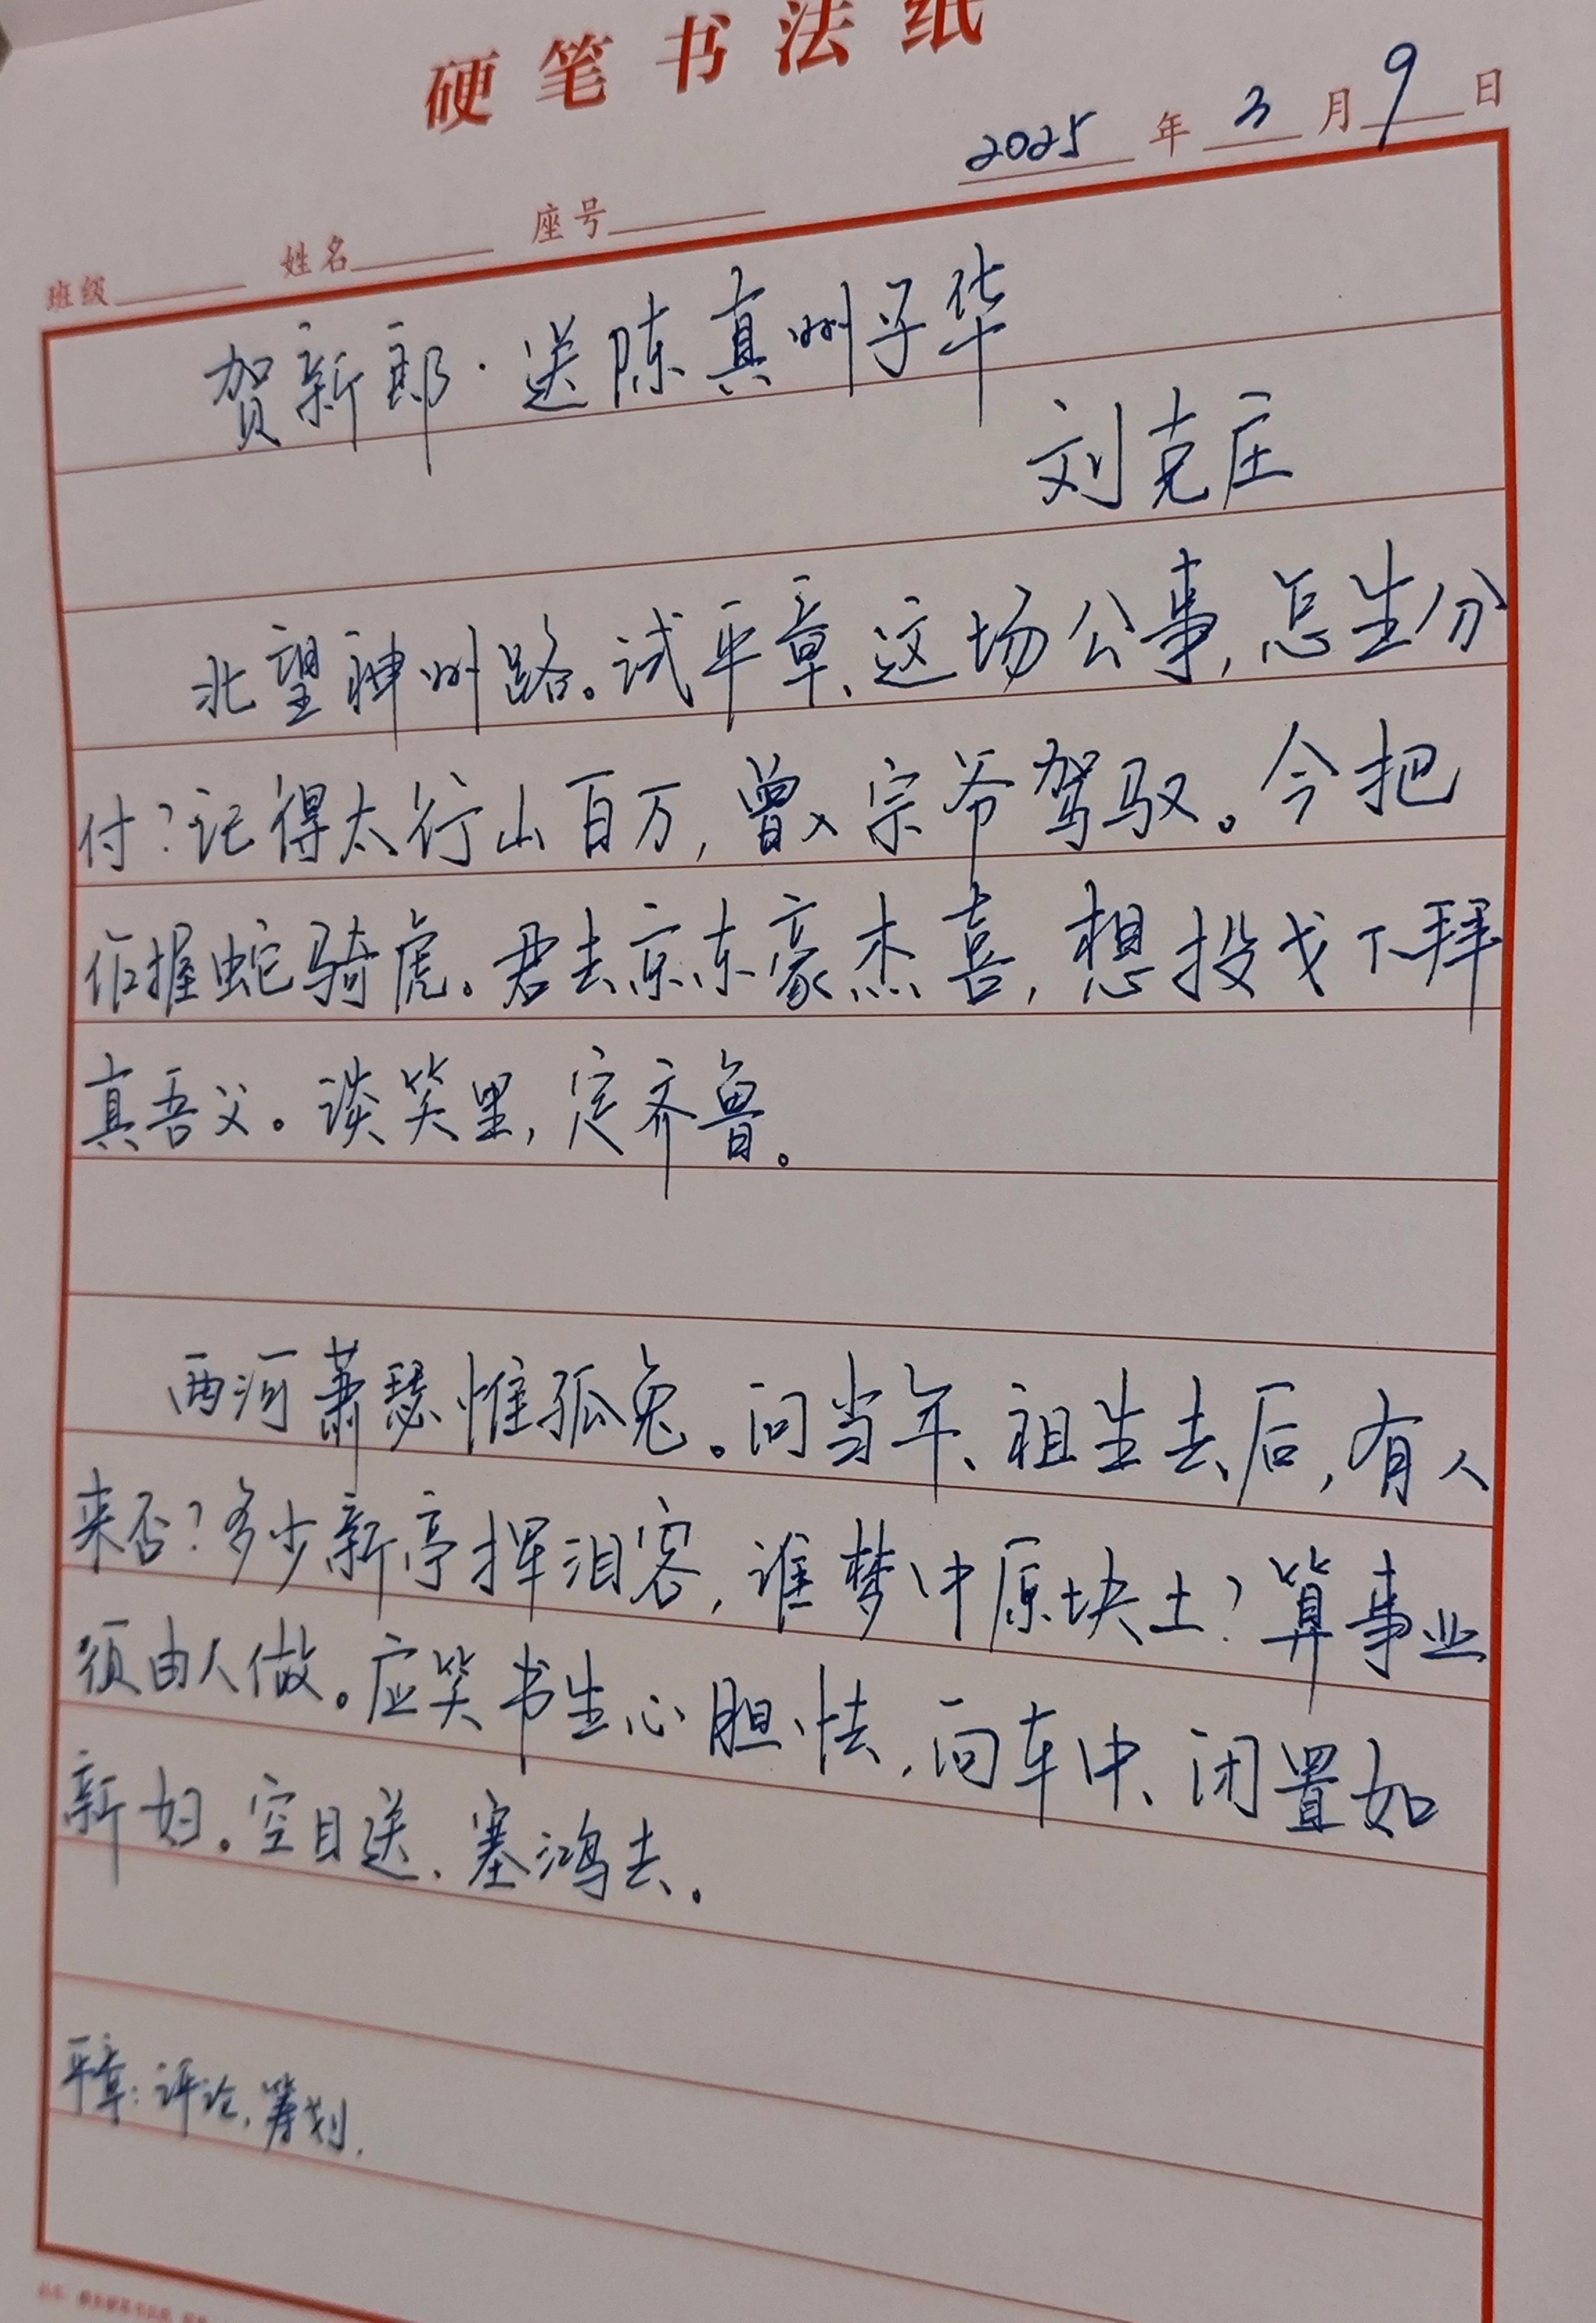 硬笔书法纸
2025年3月9日
班级 姓名 座号
贺新郎·送陈真州子华
刘克庄
北望神州路。试平章、这场公事,怎生分
付?记得太行山百万,曾入宗爷驾驭。今把
作握蛇骑虎。君去京东豪杰喜,想投戈下拜
真吾父。谈笑里,定齐鲁。
两河萧瑟惟孤兔。问当年、祖生去后,有人
来否?多少新亭挥泪客,谁梦中原块土?算事业
须由人做。应笑书生心胆怯,向车中、闭置如
新妇。空目送、塞鸿去。
平章:评论,筹划.